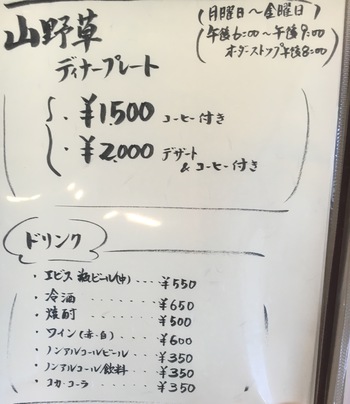 山野草
ディナープレート
(月曜日〜金曜日)
(午後6:00〜午後9:00
オーダーストップ午後8:00)
・¥1,500 コーヒー付き
・¥2,000 デザート
& コーヒー付き
ドリンク
・エビス 瓶ビール(中)‥‥¥550
・冷酒 ‥‥‥‥ ¥650
・焼酎 ‥‥‥‥ ¥500
・ワイン(赤・白)‥‥¥600
・ノンアルコールビール‥‥¥350
・ノンアルコール飲料‥‥¥350
・コカ・コーラ ‥‥‥ ¥350